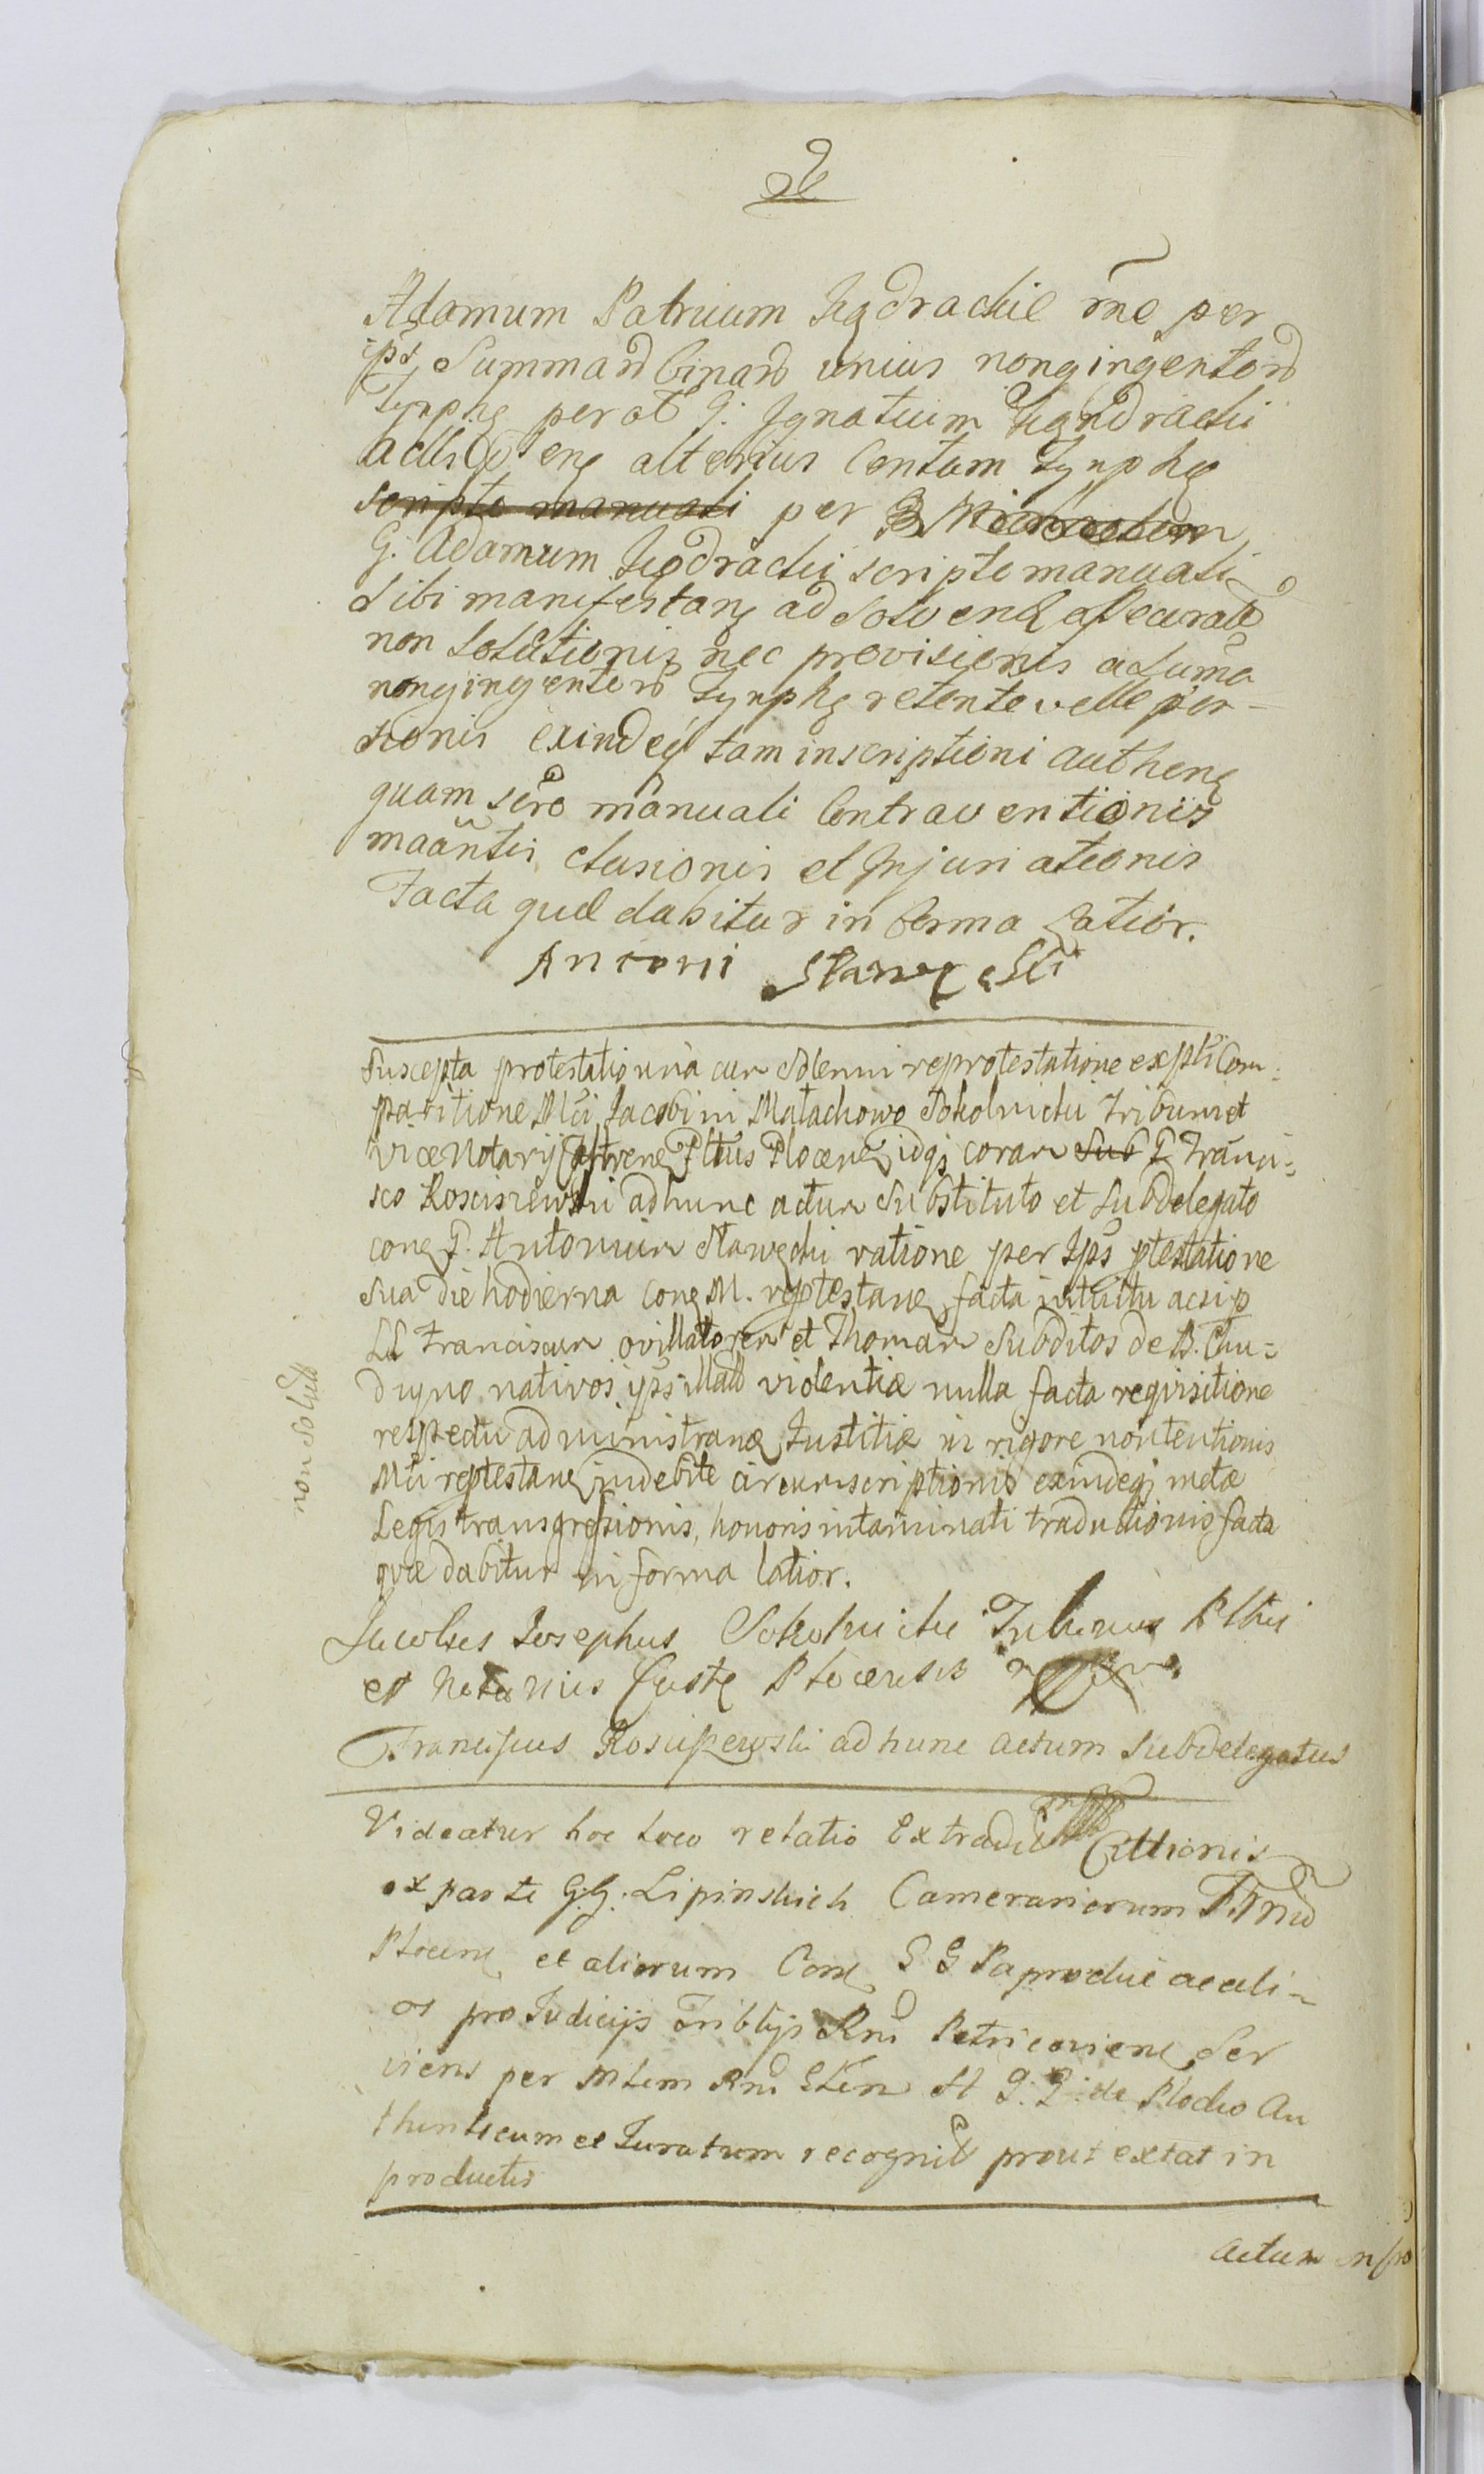 Adamum Patruum Kędrackie rñe per
ips Summarũ binarũ unius nongingentorũ
Tynpho per ot G. Ignatium Kędracki
alterius Centum Tynpho
scripto manuali per
G. Adamum Kędracki scripto manuali
Sibi manifestanę ad Solvend assecurat
non Solutionis nec provisionis a Suma
nongingentorũ Tynpho retente velle per-
sionis exindeq tam inscriptioni authenę
quam scro manuali Contraventionis
maãntis elusionis et Injuriationis
Facta que dabitur in forma latior.
Antoni Staręski
Suscepta protestatio unà cum Solenni reprotestatione ex pti Com-
paritione Mci Jacobi in Małachowo Sokolnicki Tribuni et
Vice Notarij Castrenę Pltus Plocenę idqj coram sub G Franci=
sco Kosciszewski ad hunc actum Substituto et Subdelegato
conę G. Antonium Nawęcki ratione per Ips ptestatione
Sua die hodierna conę M. reptestanę facta intuitu acsi p
LL Franciscum ovillatorem et Thomam Subditos de B. Chu=
dzyno nativos ips illatũ violentiæ nulla facta requisitione
respectu administranæ Justitiæ in rigore non tentionis
Mci reptestanę indebite circumscriptionis exindeqj metæ
Legis transgressionis, honoris intaminati traductionis facta
quæ dabitur in forma latior.
non Solut
Jacobus Josephus Sokolnicki Tribunus Plthus
et Notarius Castę Plocensis
Franciscus Kosciszewski ad hunc actum Subdelegatus
Videatur hoc loco relatio Extradit Cittionis
ex parte G.G. Lipinskich Camerariorum
Plocenę et aliorum Conę G G Paprockie ac ali-
os pro Judicijs Triblijs Rni Petricoviensę Ser
viens per Mtem Rni G.G. de Plocko Au
thenticum et Juratum recognit prout extat in
productis
Actum in fro